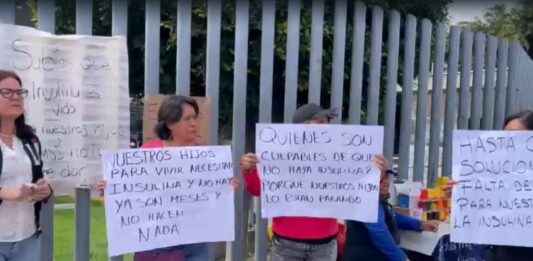 Sabías que
Insulina
vida
nuestros hijos
NUESTROS HIJOS
PARA VIVIR NECESITAN
INSULINA Y NO HAY
YA SON MESES Y
NO HACEN
NADA
QUIENES SON
CULPABLES DE QUE
NO HAYA INSULINA?
PORQUE NUESTROS HIJOS
LO ESTAN PAGANDO
HASTA C
SOLUCION
FALTA DE
PARA NUEST
LA INSULINA